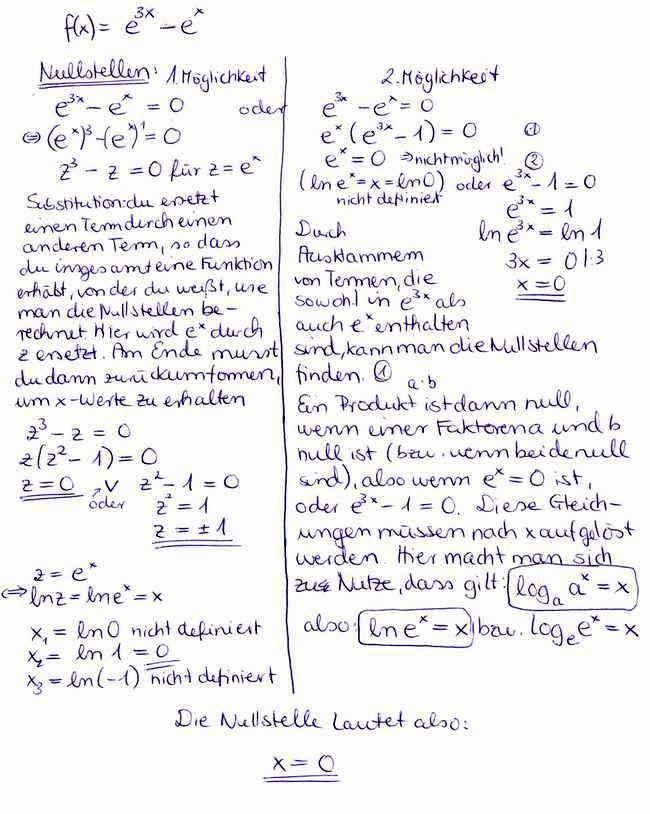 f(x) = e^3x − e^x
Nullstellen: 1. Möglichkeit
e^3x − e^x = 0 oder
⇔ (e^x)^3 − (e^x)^1 = 0
z^3 − z = 0 für z = e^x
Substitution: du ersetzt
einen Term durch einen
anderen Term, so dass
du insgesamt eine Funktion
erhält, von der du weißt, wie
man die Nullstellen be-
rechnet. Hier wird e^x durch
z ersetzt. Am Ende musst
du dann zurückumformen,
um x-Werte zu erhalten
z^3 − z = 0
z(z^2 − 1) = 0
z = 0 ∨ z^2 − 1 = 0
oder z^2 = 1
z = ±1
z = e^x
⇔ ln z = ln e^x = x
x1 = ln 0 nicht definiert
x2 = ln 1 = 0
x3 = ln(−1) nicht definiert
2. Möglichkeit
e^3x − e^x = 0
e^x (e^3x − 1) = 0 ①
e^x = 0 ⇒ nicht möglich! ②
(ln e^x = x = ln 0) oder e^3x − 1 = 0
nicht definiert e^3x = 1
Durch ln e^3x = ln 1
Ausklammern 3x = 0 | :3
von Termen, die x = 0
sowohl in e^3x als
auch e^x enthalten
sind, kann man die Nullstellen
finden. ① a·b
Ein Produkt ist dann null,
wenn einer Faktoren a und b
null ist (bzw. wenn beide null
sind), also wenn e^x = 0 ist,
oder e^3x − 1 = 0. Diese Gleich-
ungen müssen nach x aufgelöst
werden. Hier macht man sich
zu Nutze, dass gilt: log_a a^x = x
also: ln e^x = x bzw. log_e e^x = x
Die Nullstelle lautet also:
x = 0